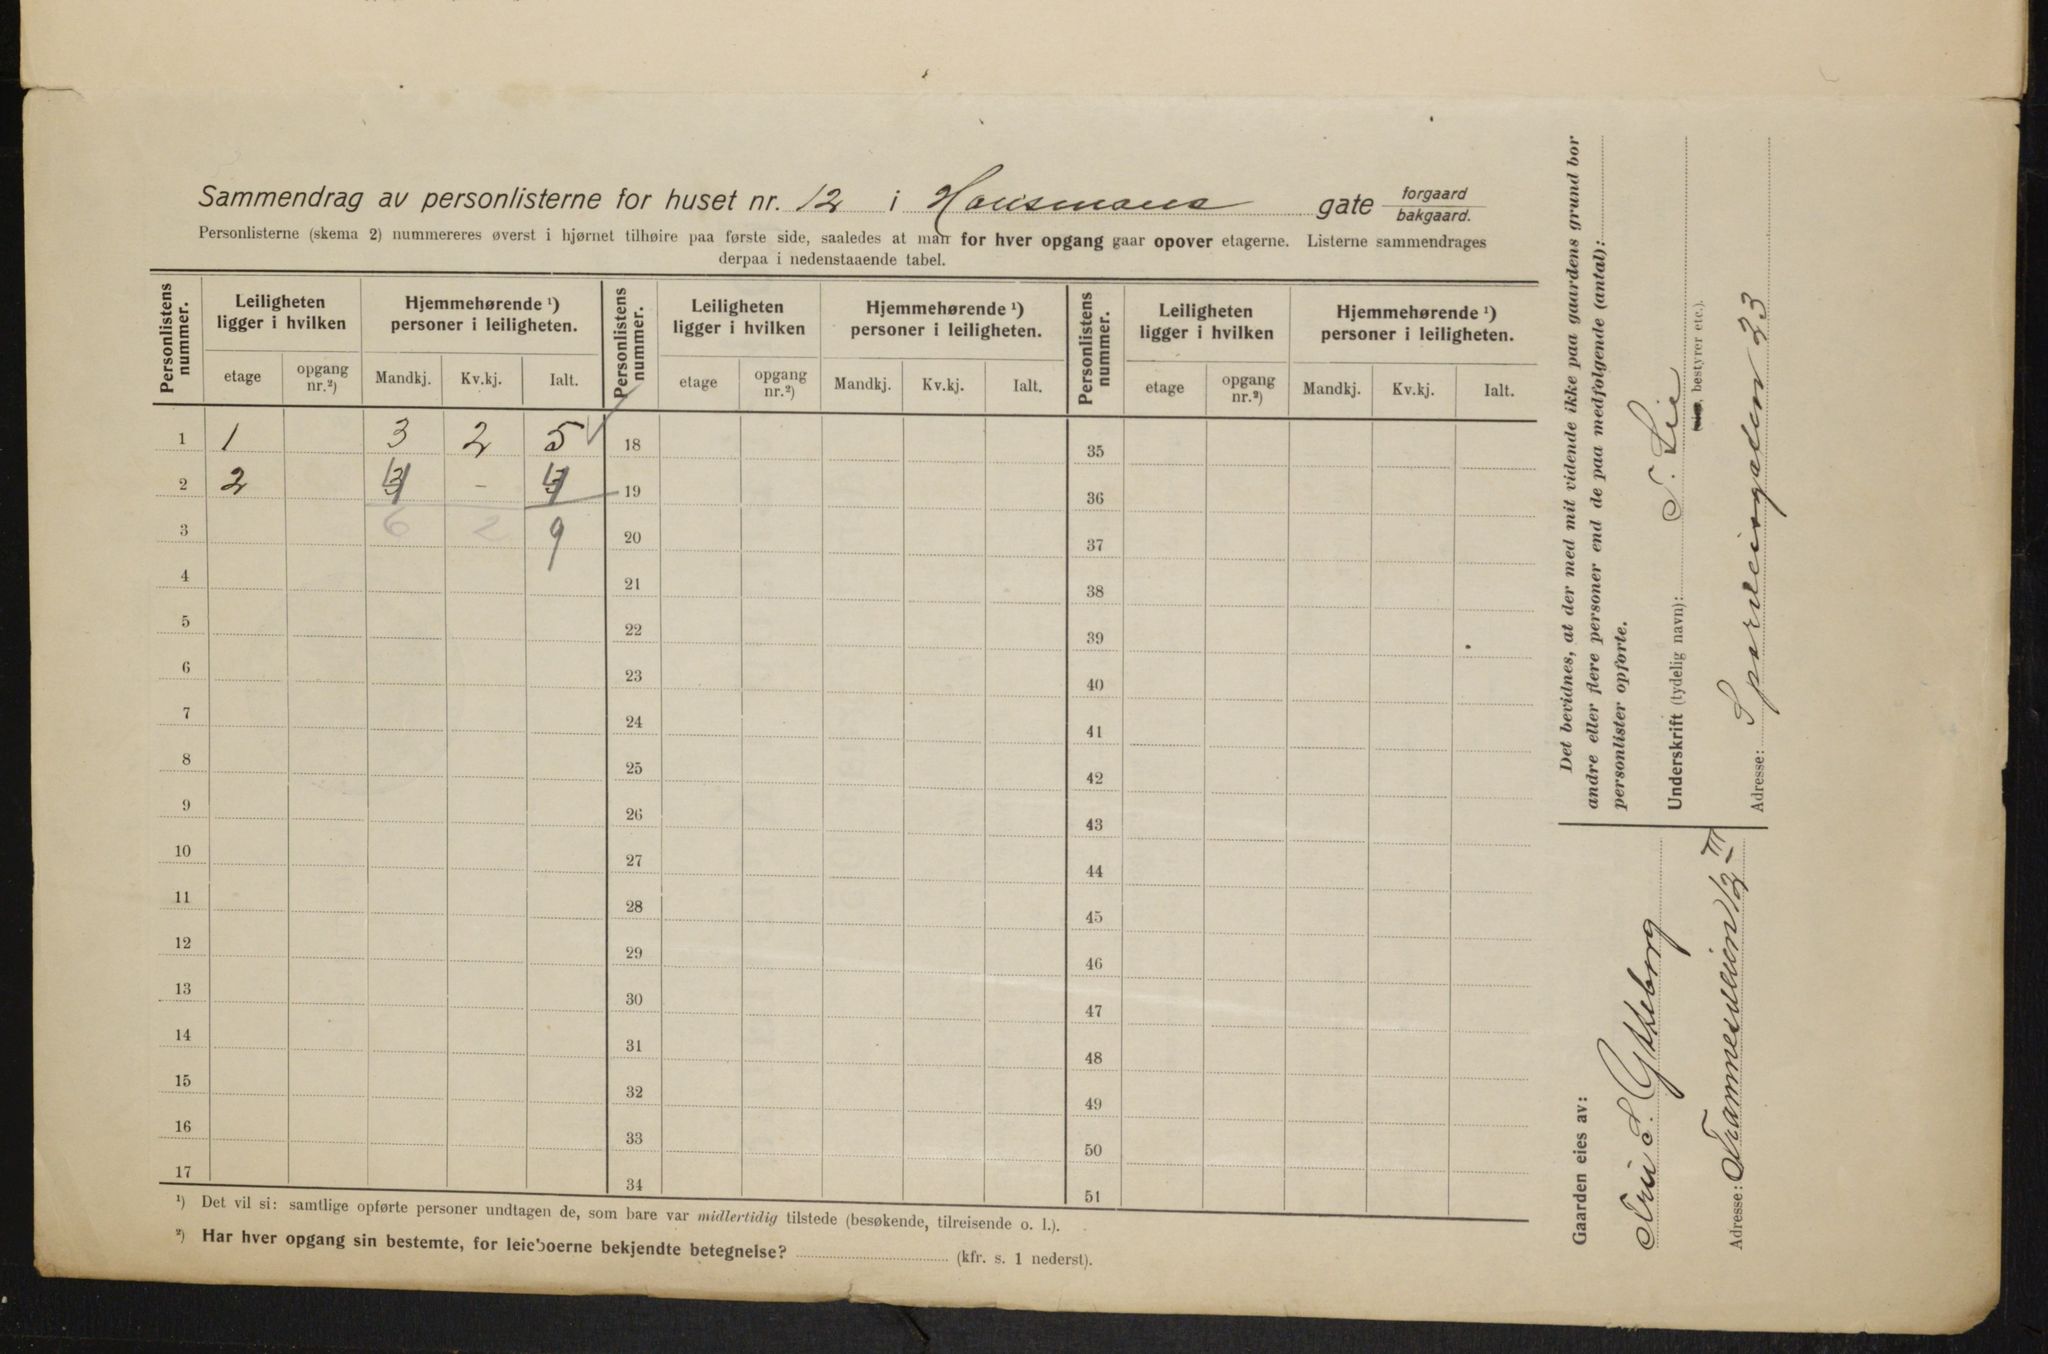 Sammendrag av personlisterne for huset nr. 12 i Hausmans gate forgaard bakgaard.
Personlisterne (skema 2) nummereres øverst i hjørnet tilhøire paa første side, saaledes at man for hver opgang gaar opover etagerne. Listerne sammendrages
derpaa i nedenstaaende tabel.
Personlistens nummer. Leiligheten ligger i hvilken Hjemmehørende ¹) personer i leiligheten. Personlistens nummer. Leiligheten ligger i hvilken Hjemmehørende ¹) personer i leiligheten. Personlistens nummer. Leiligheten ligger i hvilken Hjemmehørende ¹) personer i leiligheten.
etage opgang nr.²) Mandkj. Kv.kj. Ialt. etage opgang nr.²) Mandkj. Kv.kj. Ialt. etage opgang nr.²) Mandkj. Kv.kj. Ialt.
1 1 3 2 5 18 35
2 2 4 - 4 19 36
3 6 2 9 20 37
4 21 38
5 22 39
6 23 40
7 24 41
8 25 42
9 26 43
10 27 44
11 28 45
12 29 46
13 30 47
14 31 48
15 32 49
16 33 50
17 34 51
¹) Det vil si: samtlige opførte personer undtagen de, som bare var midlertidig tilstede (besøkende, tilreisende o. l.).
²) Har hver opgang sin bestemte, for leieboerne bekjendte betegnelse? (kfr. s. 1 nederst).
Det bevidnes, at der med mit vidende ikke paa gaardens grund bor
andre eller flere personer end de paa medfølgende (antal):
personlister opførte.
Underskrift (tydelig navn): S. Lie
bestyrer etc.).
Adresse: Sporveisgaden 33
Gaarden eies av:
Fru S. Gytteborg
Adresse: Trammesveien 12 III